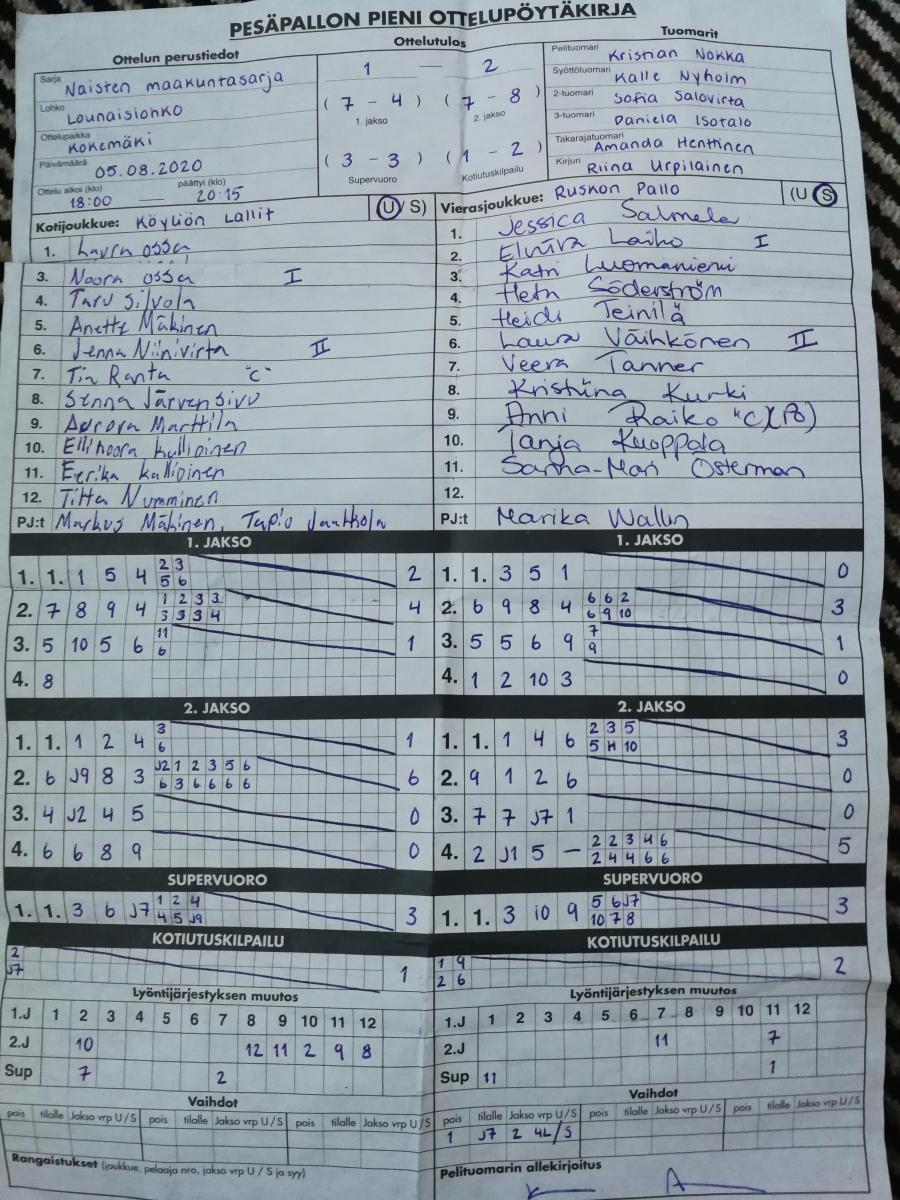 PESÄPALLON PIENI OTTELUPÖYTÄKIRJA
Ottelun perustiedot
Ottelutulos
Tuomarit
Sarja Naisten maakuntasarja
Lohko Lounaislohko
Ottelupaikka Kokemäki
Päivämäärä 05.08.2020
Ottelu alkoi (klo) 18:00 — päättyi (klo) 20:15
1 — 2
( 7 - 4 ) ( 7 - 8 )
1. jakso 2. jakso
( 3 - 3 ) ( 1 - 2 )
Supervuoro Kotiutuskilpailu
Pelituomari Kristian Nokka
Syöttötuomari Kalle Nyholm
2-tuomari Sofia Salovirta
3-tuomari Daniela Isotalo
Takarajatuomari Amanda Henttinen
Kirjuri Riina Urpilainen
Kotijoukkue: Köyliön Lallit (U/S)
1. Laura Ossa
3. Noora Ossa I
4. Taru Silvola
5. Anette Mäkinen
6. Jenna Niinivirta II
7. Tia Ranta "C"
8. Senna Järvensivu
9. Aurora Marttila
10. Ellinoora Kallioinen
11. Eerika Kallioinen
12. Titta Numminen
PJ:t Markus Mäkinen, Tapio Jaakkola
Vierasjoukkue: Ruskon Pallo (U/S)
1. Jessica Salmela
2. Elviira Laiho I
3. Katri Luomaniemi
4. Heta Söderström
5. Heidi Teinilä
6. Laura Väihkönen II
7. Veera Tanner
8. Kristiina Kurki
9. Anni Raiko "C"
10. Tanja Kuoppala
11. Sanna-Mari Österman
12.
PJ:t Marika Wallin
1. JAKSO
1. 1. 1 5 4 2 3 2
5 6
2. 7 8 9 4 1 2 3 3 4
3 3 3 4
3. 5 10 5 6 11 1
6
4. 8
1. JAKSO
1. 1. 3 5 1 0
2. 6 9 8 4 6 6 2 3
6 9 10
3. 5 5 6 9 7 1
9
4. 1 2 10 3 0
2. JAKSO
1. 1. 1 2 4 3 1
6
2. 6 J9 8 3 J2 1 2 3 5 6 6
6 3 6 6 6 6
3. 4 J2 4 5 0
4. 6 6 8 9 0
2. JAKSO
1. 1. 1 4 6 2 3 5 3
5 H 10
2. 9 1 2 6 0
3. 7 7 J7 1 0
4. 2 J1 5 – 2 2 3 4 6 5
2 4 4 6 6
SUPERVUORO
1. 1. 3 6 J7 1 2 4 3
4 5 J9
SUPERVUORO
1. 1. 3 10 9 5 6 J7 3
10 7 8
KOTIUTUSKILPAILU
2 1
J7
KOTIUTUSKILPAILU
1 9 2
2 6
Lyöntijärjestyksen muutos
1.J 1 2 3 4 5 6 7 8 9 10 11 12
2.J 10 12 11 2 9 8
Sup 7 2
Lyöntijärjestyksen muutos
1.J 1 2 3 4 5 6 7 8 9 10 11 12
2.J 11 7
Sup 11 1
Vaihdot
pois tilalle Jakso vrp U/S pois tilalle Jakso vrp U/S pois tilalle Jakso vrp U/S
Vaihdot
pois tilalle Jakso vrp U/S pois tilalle Jakso vrp U/S pois tilalle Jakso vrp U/S
1 J7 2 4L/S
Rangaistukset (joukkue, pelaaja nro, jakso vrp U / S ja syy)
Pelituomarin allekirjoitus